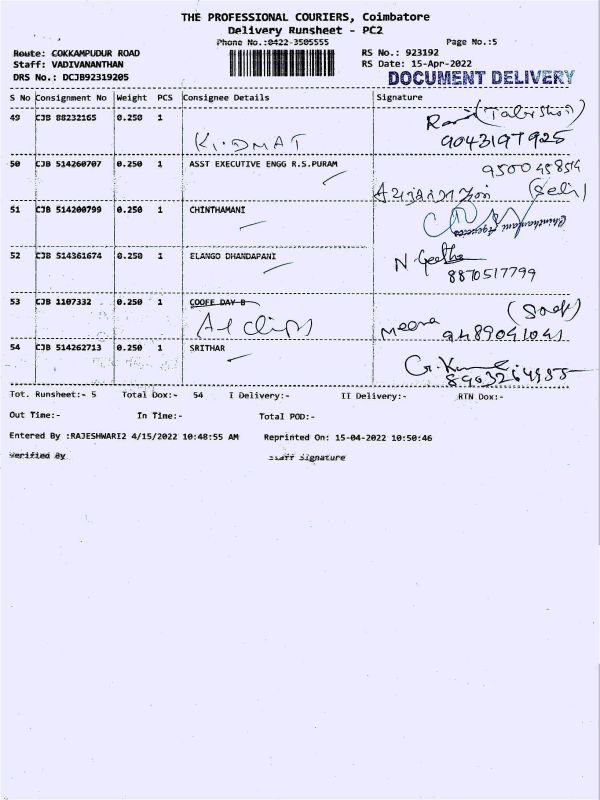 THE PROFESSIONAL COURIERS, Coimbatore
Delivery Runsheet - PC2
Phone No.:0422-3505555 Page No.:5
Route: COKKAMPUDUR ROAD RS No.: 923192
Staff: VADIVANANTHAN RS Date: 15-Apr-2022
DRS No.: DCJB92319205 DOCUMENT DELIVERY
S No Consignment No Weight PCS Consignee Details Signature
49 CJB 88232165 0.250 1
9043197925
50 CJB 514260707 0.250 1 ASST EXECUTIVE ENGG R.S.PURAM
51 CJB 514200799 0.250 1 CHINTHAMANI
Chinthamani Agencies
52 CJB 514361674 0.250 1 ELANGO DHANDAPANI N. Geetha
8870517799
53 CJB 1107332 0.250 1 COOFE DAY B
Meena 9489041041
54 CJB 514262713 0.250 1 SRITHAR
Tot. Runsheet:- 5 Total Dox:- 54 I Delivery:- II Delivery:- RTN Dox:-
Out Time:- In Time:- Total POD:-
Entered By :RAJESHWARI2 4/15/2022 10:48:55 AM Reprinted On: 15-04-2022 10:50:46
Verified By Staff Signature